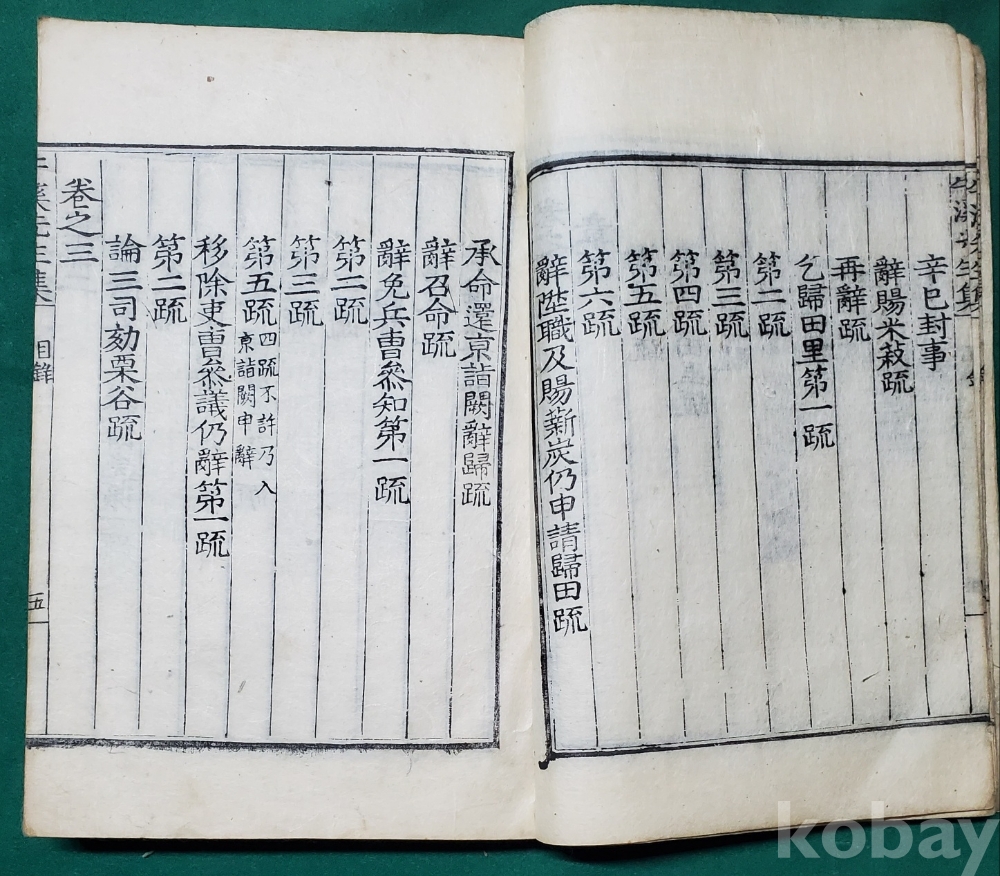 牛溪先生集
辛巳封事
辭賜米菽疏
再辭疏
乞歸田里第一疏
第二疏
第三疏
第四疏
第五疏
第六疏
辭陞職及賜薪炭仍申請歸田疏
承命還京詣闕辭歸疏
辭召命疏
辭免兵曹叅知第一疏
第二疏
第三疏
第五疏 四疏不許乃入
京詣闕申辭
移除吏曹叅議仍辭第一疏
第二疏
論三司劾栗谷疏
卷之三
五
kobay